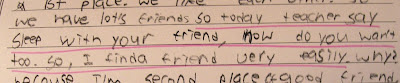 1st place. We like each other. So
we have lot's friends so today teacher say
sleep with your friend, How do you want
too. So, I finda friend very easily why?
because I'm second place good friend